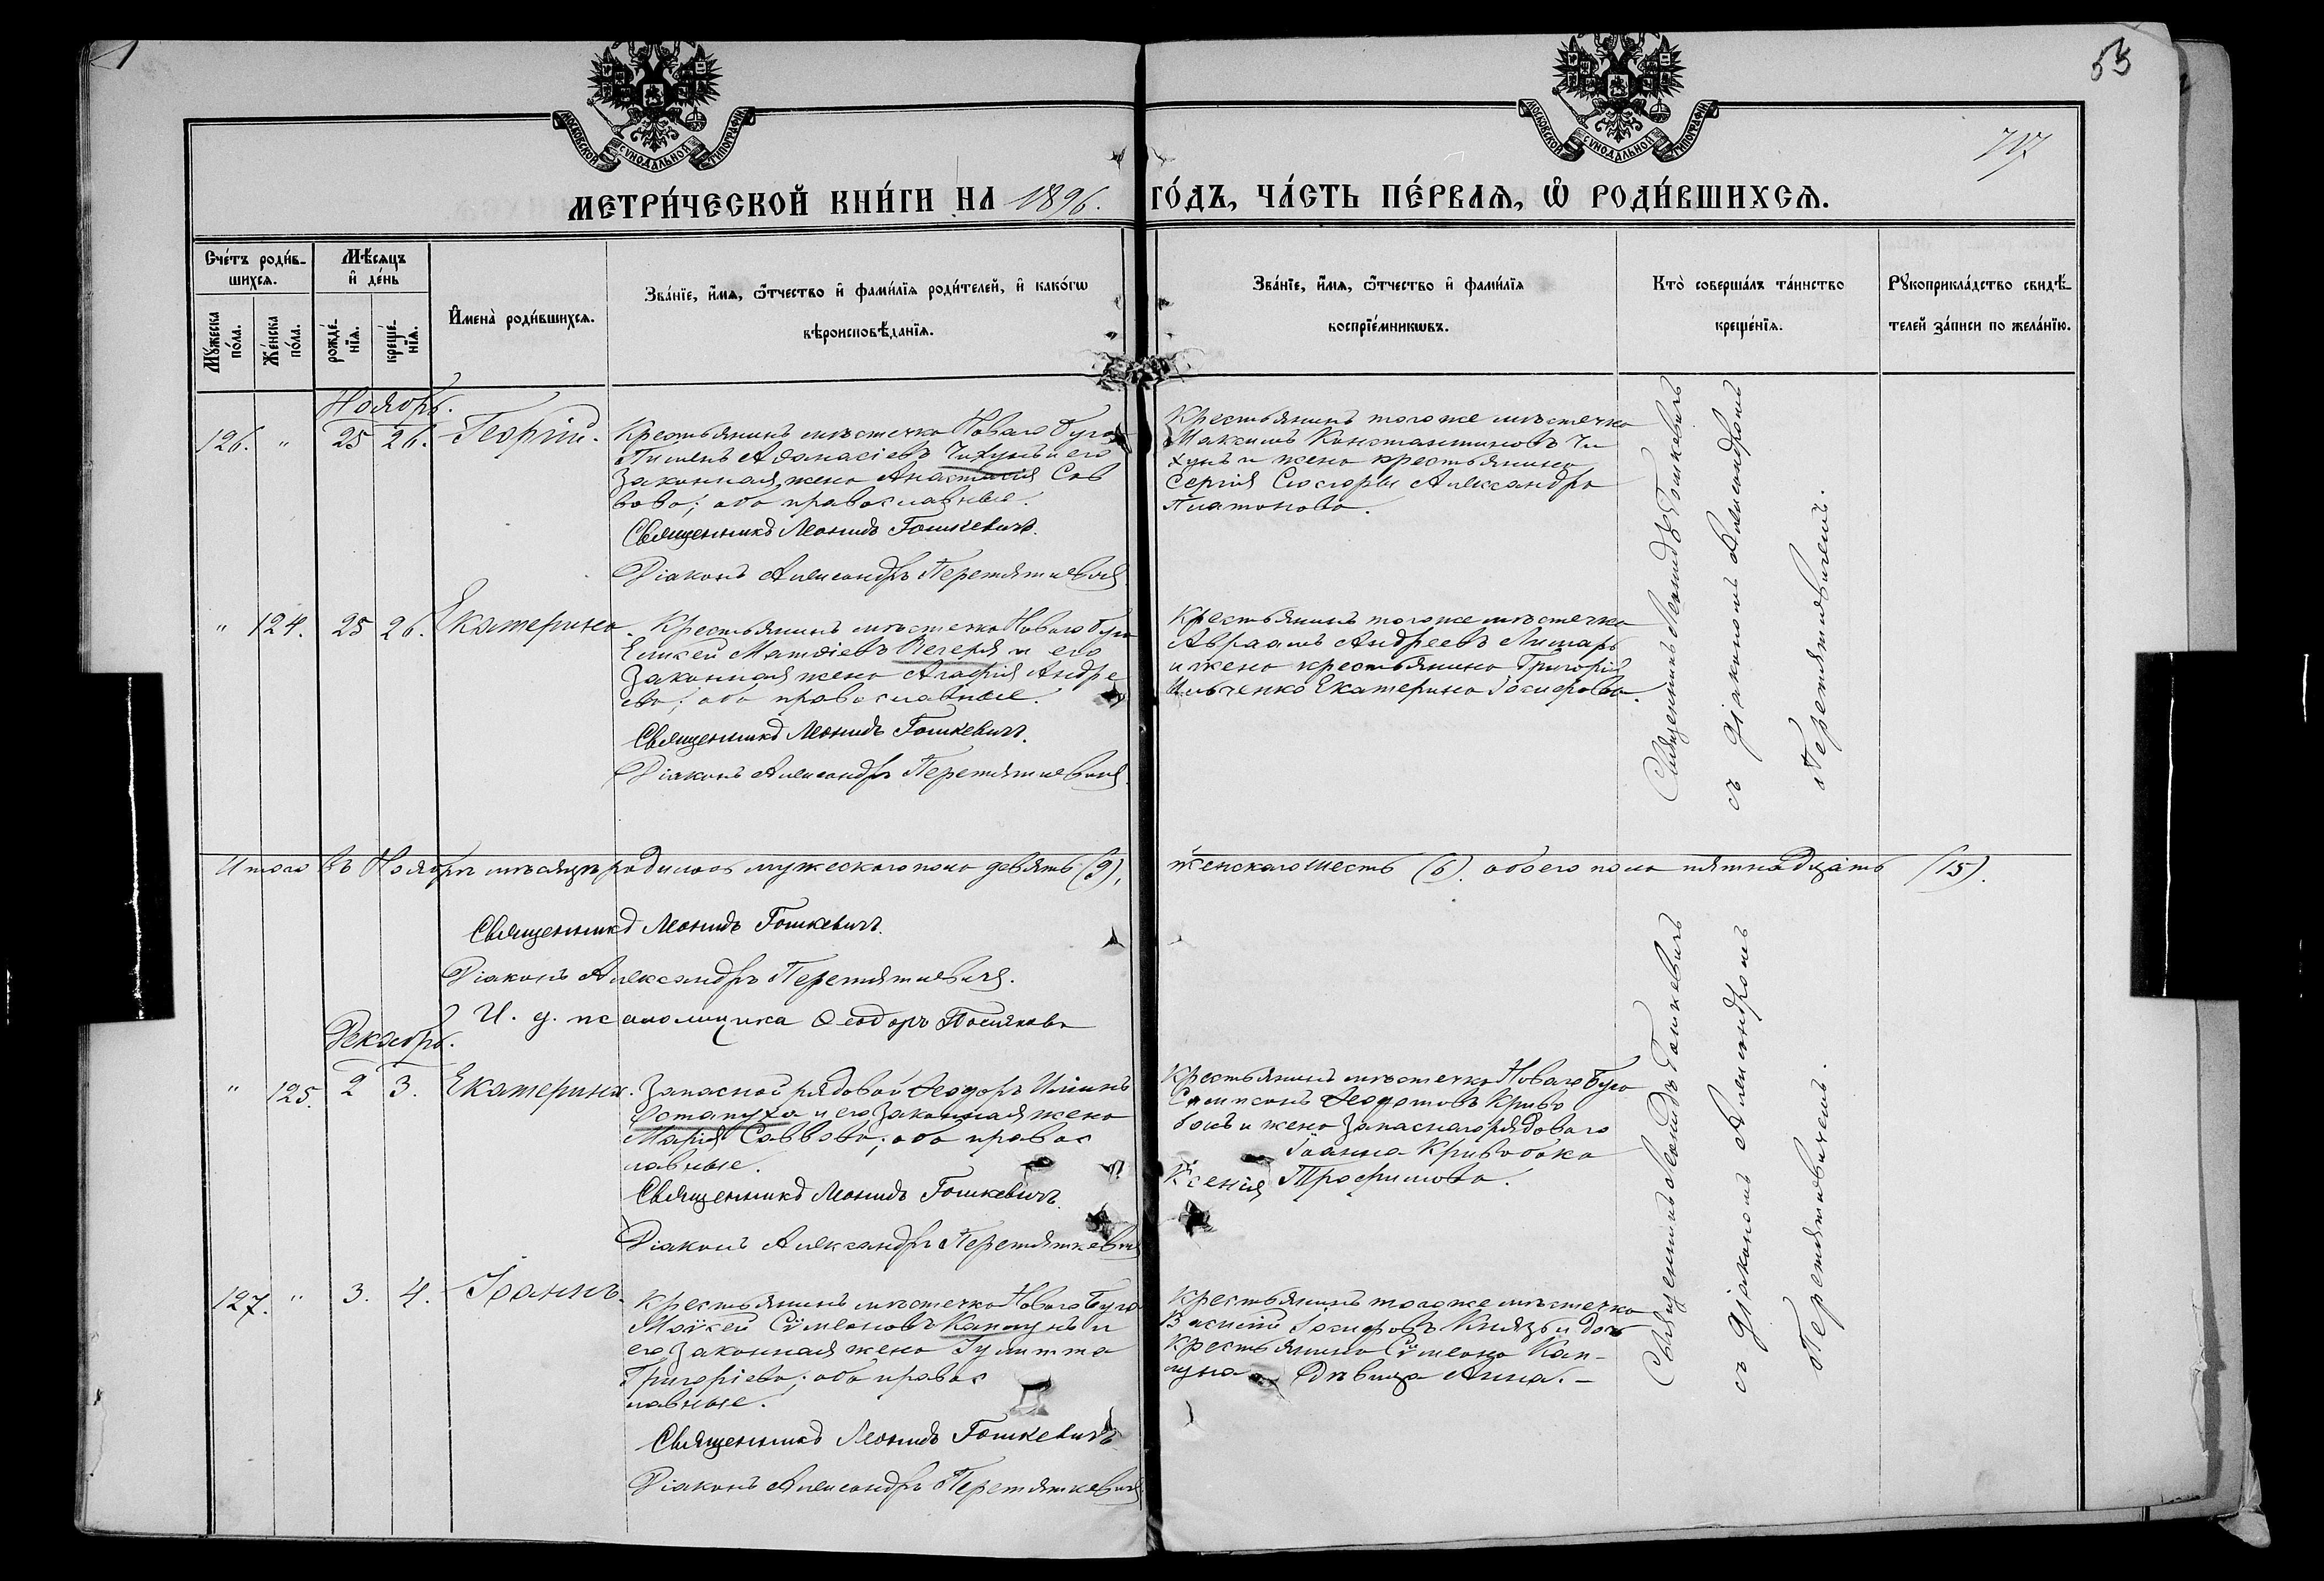 53
717
МОСКОВСКОЙ СѴНОДАЛЬНОЙ ТИПОГРАФІИ
МОСКОВСКОЙ СѴНОДАЛЬНОЙ ТИПОГРАФІИ
МЕТРИ́ЧЕСКОЙ КНИ́ГИ НА 1896. ГО́ДЪ, ЧА́СТЬ ПЕ́РВАѦ, Ѡ҆ РОДИ́ВШИХСѦ.
Сче́тъ роди́в-
шихсѧ.
Мꙋ́жеска по́ла.
Же́нска по́ла.
Мѣ́сѧцъ
и҆ де́нь
рожде́-
нїѧ.
креще́-
нїѧ.
И҆мена̀ роди́вшихсѧ.
Зва́нїе, и҆́мѧ, ѻ҆́тчество и҆ фами́лїѧ роди́телей, и҆ како́гѡ
вѣроисповѣ́данїѧ.
Зва́нїе, и҆́мѧ, ѻ҆́тчество и҆ фами́лїѧ
воспрїе́мникѡвъ.
Кто̀ соверша́лъ та́инство
креще́нїѧ.
Рꙋкоприкла́дство свидѣ́-
телей за́писи по жела́нїю.
Ноябрь.
126. " 25 26. Георгій.
Крестьянинъ мѣстечка Новаго Буга
Пименъ Аѳанасіевъ Чихунъ и его
законная жена Анастасія Сав
вова; оба православные.
Священникъ Леонидъ Гошкевичъ.
Діаконъ Александръ Перетяткевичъ
Крестьянинъ того же мѣстечка
Максимъ Константиновъ Чи
хунъ и жена крестьянина
Сергія Сюсюры Александра
Платонова.
" 124. 25 26. Екатерина.
Крестьянинъ мѣстечка Новаго Буга
Елисей Матѳіевъ Вечеря и его
законная жена Агафія Андре
ева; оба православные.
Священникъ Леонидъ Гошкевичъ.
Діаконъ Александръ Перетяткевичъ.
Крестьянинъ того же мѣстечка
Авраамъ Андреевъ Лимарь
и жена крестьянина Григорія
Ильченко Екатерина Іосифова.
Священникъ Леонидъ Гошкевичъ
съ діакономъ Александромъ
Перетяткевичемъ.
Итого въ Ноябрѣ мѣсяцѣ родилось мужескаго пола девять (9), женскаго шесть (6). обоего пола пятнадцать (15).
Священникъ Леонидъ Гошкевичъ.
Діаконъ Александръ Перетяткевичъ.
И. д. псаломщика Ѳеодоръ
Декабрь.
" 125. 2 3. Екатерина.
Запасной рядовой Ѳеодоръ Илiинъ
Остапуха и его законная жена
Марія Саввова; оба правос
лавные.
Священникъ Леонидъ Гошкевичъ.
Діаконъ Александръ Перетяткевичъ
Крестьянинъ мѣстечка Новаго Буга
Сампсонъ Ѳедотовъ Криво
бокъ и жена запаснаго рядового
Іоанна Кривобока
Ксенія Трофимова.
127. " 3. 4. Іоаннъ.
Крестьянинъ мѣстечка Новаго Буга
Моѵсей Сѵмеоновъ Каплунъ и
его законная жена Іулитта
Григоріева; оба правос
лавные.
Священникъ Леонидъ Гошкевичъ
Діаконъ Александръ Перетяткевичъ
Крестьянинъ того же мѣстечка
Василій Іосифовъ Князь и дочь
крестьянина Сѵмеона Кап-
луна Дѣвица Анна.-
Священникъ Леонидъ Гошкевичъ
съ діакономъ Александромъ
Перетяткевичемъ.